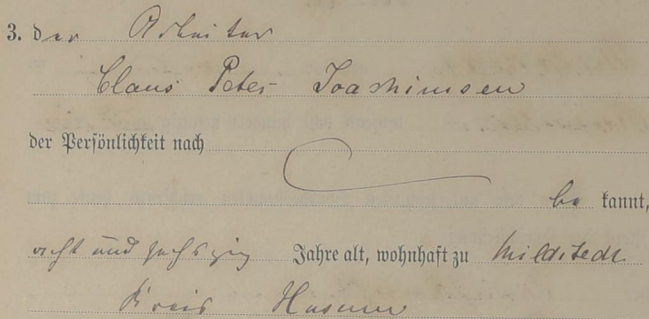 3. der Arbeiter
Claus Peter Joachimsen
der Persönlichkeit nach
be kannt,
acht und sechszig Jahre alt, wohnhaft zu Mildstedt
Kreis Husum